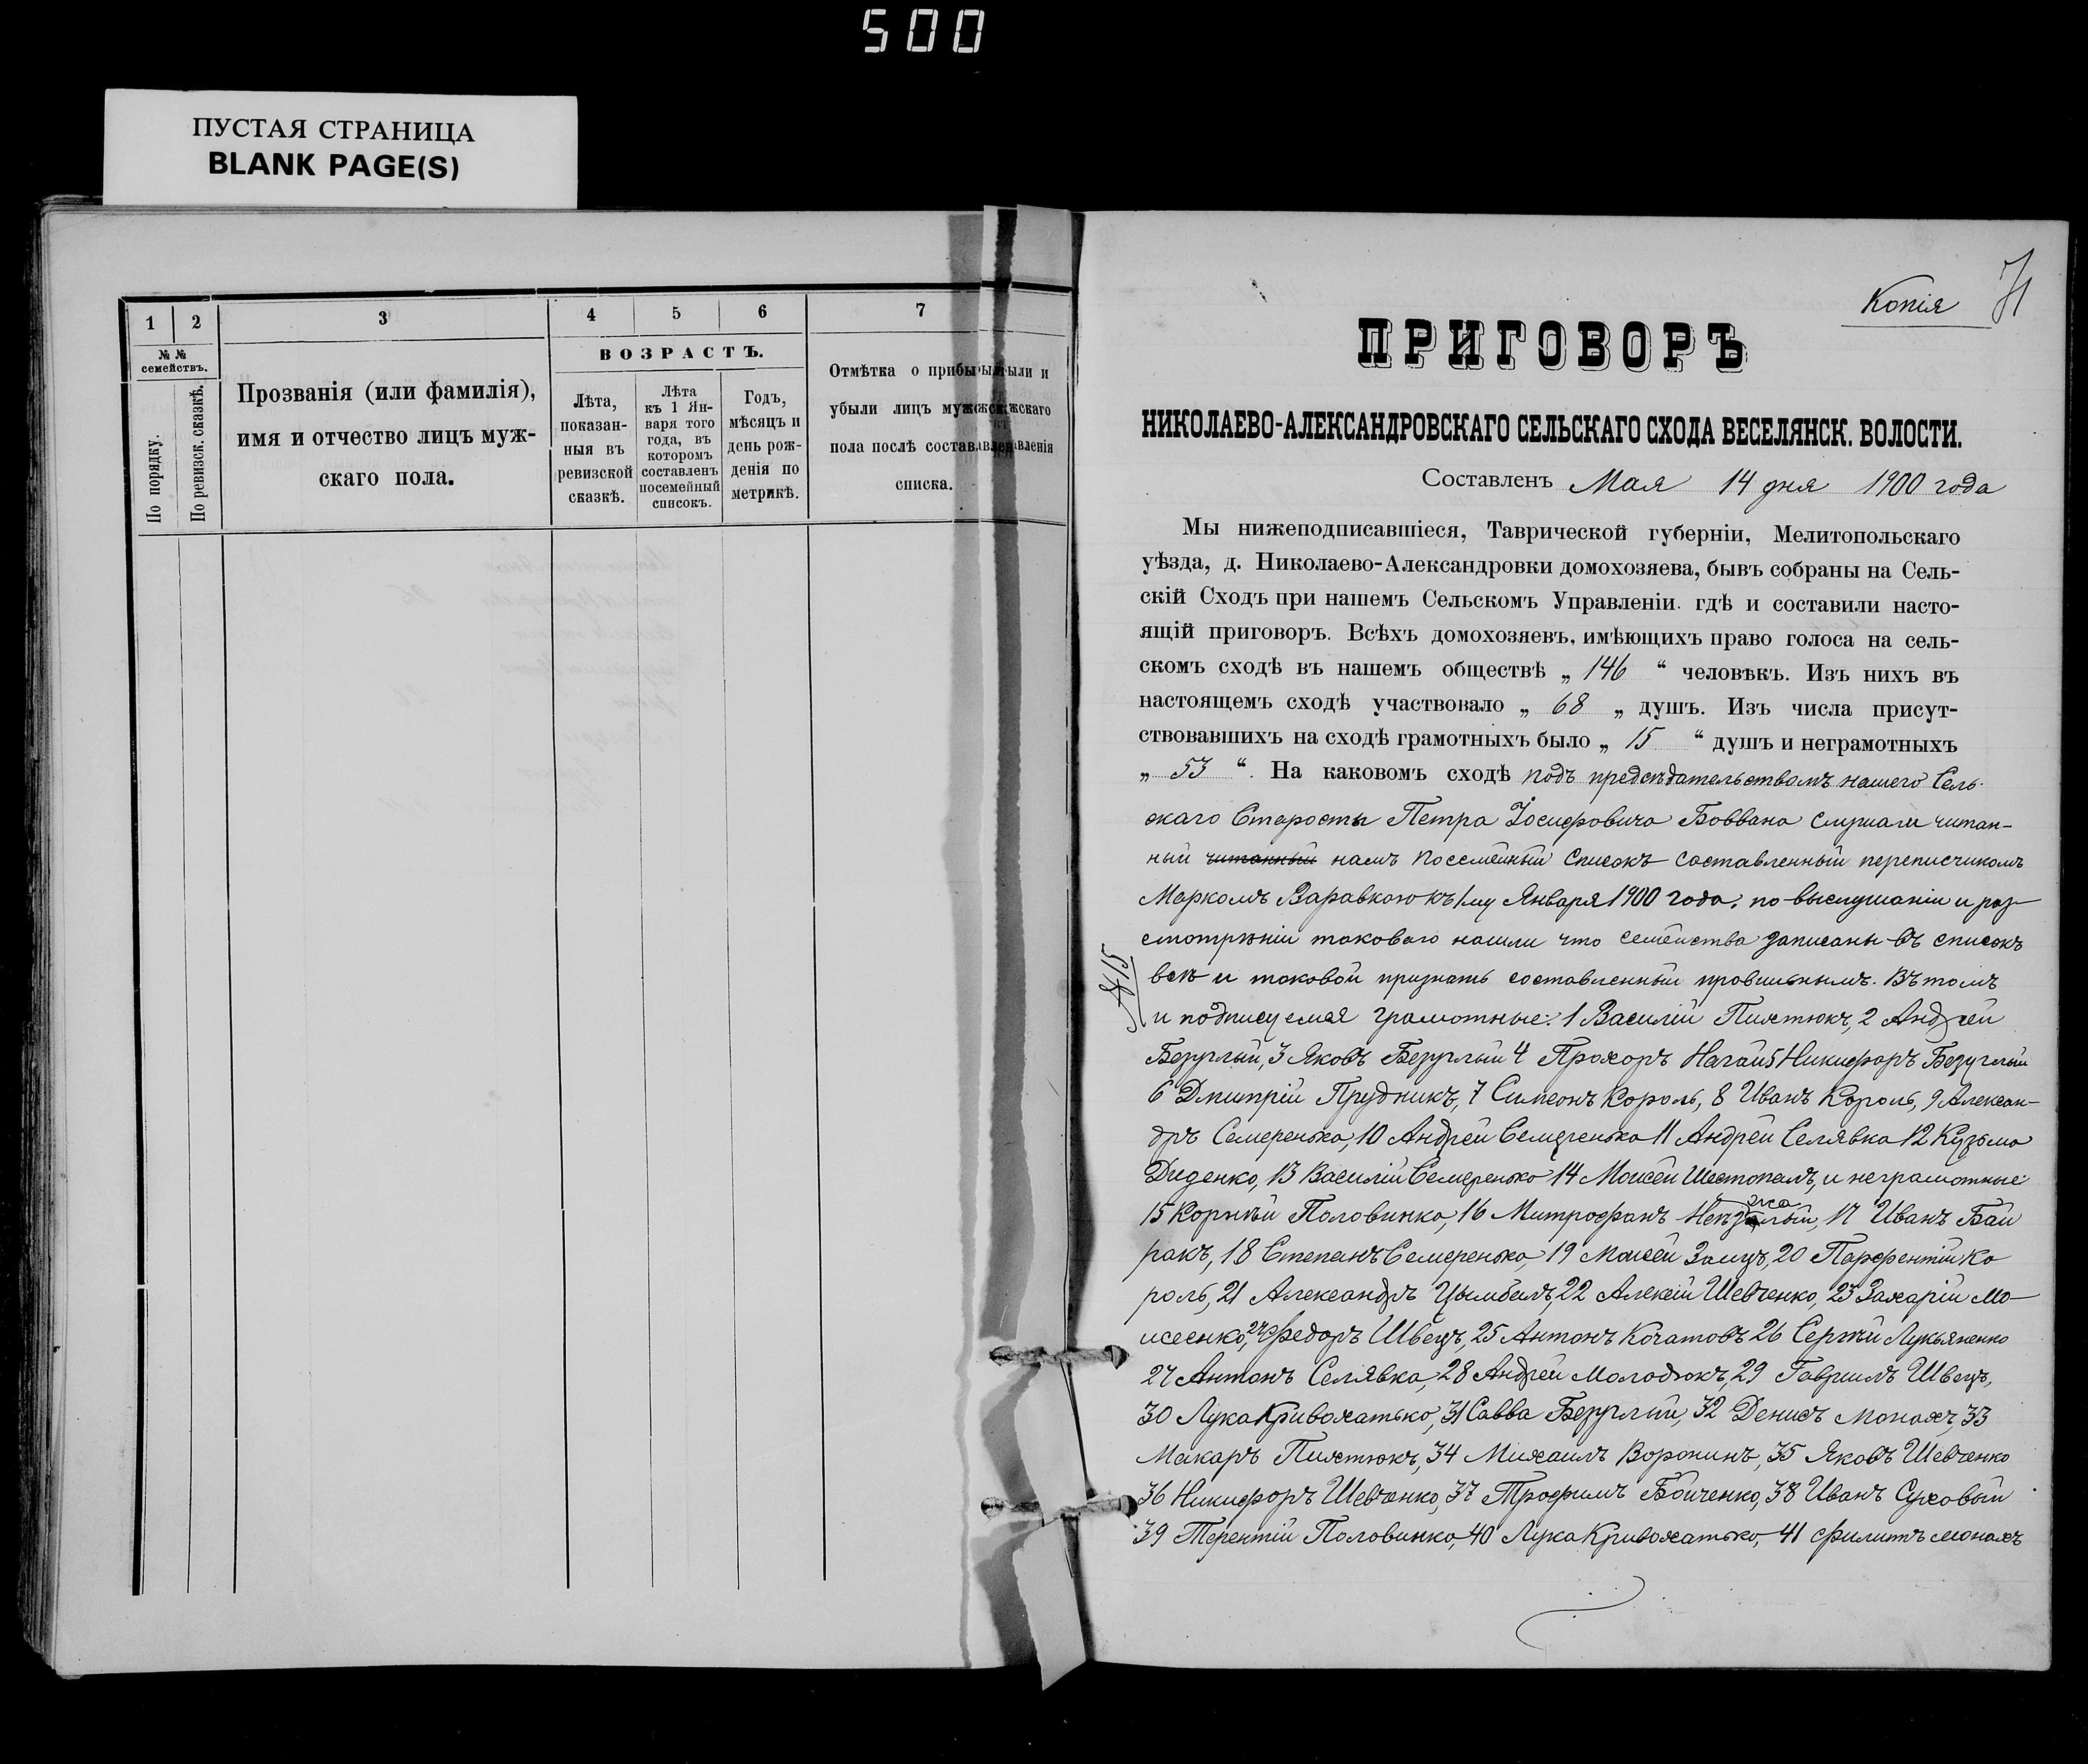 500
ПУСТАЯ СТРАНИЦА
BLANK PAGE(S)
1 2 3 4 5 6 7
№ №
семействъ.
По порядку.
По ревизск. сказкѣ.
Прозванія (или фамилія),
имя и отчество лицъ муж-
скаго пола.
ВОЗРАСТЪ.
Лѣта,
показан-
ныя въ
ревизской
сказкѣ.
Лѣта
къ 1 Ян-
варя того
года, въ
которомъ
составленъ
посемейный
списокъ.
Годъ,
мѣсяцъ и
день рож-
денія по
метрикѣ.
Отмѣтка о прибыли и
убыли лицъ мужскаго
пола послѣ составленія
списка.
Копія
71
ПРИГОВОРЪ
НИКОЛАЕВО-АЛЕКСАНДРОВСКАГО СЕЛЬСКАГО СХОДА ВЕСЕЛЯНСК. ВОЛОСТИ.
Составленъ Мая 14 дня 1900 года
Мы нижеподписавшіеся, Таврической губерніи, Мелитопольскаго
уѣзда, д. Николаево-Александровки домохозяева, бывъ собраны на Сель-
скій Сходъ при нашемъ Сельскомъ Управленіи. гдѣ и составили насто-
ящій приговоръ. Всѣхъ домохозяевъ, имѣющихъ право голоса на сель-
скомъ сходѣ въ нашемъ обществѣ „ 146 “ человѣкъ. Изъ нихъ въ
настоящемъ сходѣ участвовало „ 68 „ душъ. Изъ числа присут-
ствовавшихъ на сходѣ грамотныхъ было „ 15 “ душъ и неграмотныхъ
„ 53 “. На каковомъ сходѣ подъ предсѣдательствомъ нашего Сель-
скаго Старосты Петра Іосифовича Боввана слушали читан-
ный читанный намъ посемейный списокъ составленный переписчикомъ
Маркомъ Варавкою къ 1му Января 1900 года, по выслушаніи и раз-
смотрѣніи таковаго нашли что семейства записаны въ списокъ
всѣ и таковой признать составленный правильнымъ. Въ томъ
и подписуемся грамотные: 1 Василій Пихтюкъ, 2 Андрей
Безуглый, 3 Яковъ Безуглый 4 Прохоръ Нагай 5 Никифоръ Безуглый
6 Дмитрій Прудникъ, 7 Симеонъ Король, 8 Иванъ Король, 9 Алексан-
дръ Семеренько, 10 Андрей Семеренько 11 Андрей Селявка 12 Кузьма
Диденко, 13 Василій Семеренько 14 Моисей Шестопалъ, и неграмотные
15 Корнѣй Половинко, 16 Митрофанъ 17 Иванъ Бай
ракъ, 18 Степанъ Семеренько, 19 Моисей Заицъ, 20 Парфентій Ко
роль, 21 Александръ Цымбалъ, 22 Алексій Шевченко, 23 Захарій Мо-
исеенко, 24 Федоръ Швецъ, 25 Антонъ Кочатовъ 26 Сергѣй Лукьяненко
27 Антонъ Селявка, 28 Андрей Молодюкъ, 29 Гавриилъ Швецъ,
30 Лука Кривохатько, 31 Савва Безуглый, 32 Денисъ Монахъ, 33
Макаръ Пихтюкъ, 34 Михаилъ Воронинъ, 35 Яковъ Шевченко
36 Никифоръ Шевченко, 37 Трофимъ Бойченко, 38 Иванъ Суховый
39 Терентій Половинко, 40 Лука Кривохатько, 41 Филиппъ Монахъ